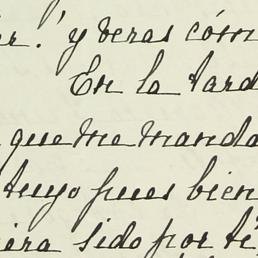 r! y veras cóm
En la tard
que me manda
tuyo pues bien
iera sido por tí